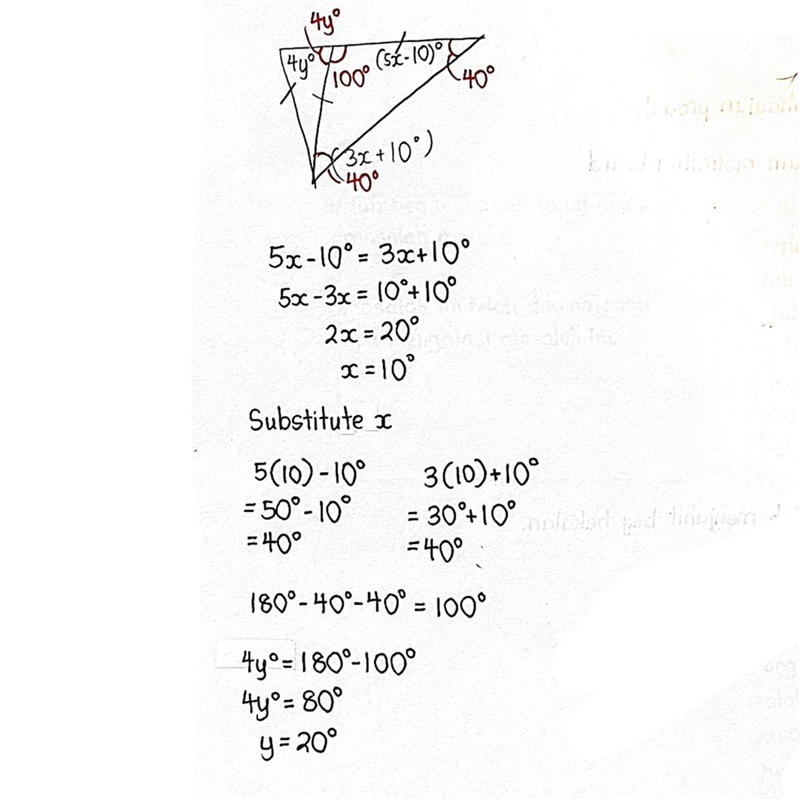 4y°
4y°
100°
(5x-10)°
40°
(3x+10°)
40°
5x-10° = 3x+10°
5x-3x = 10°+10°
2x = 20°
x = 10°
Substitute x
5(10)-10° 3(10)+10°
= 50°-10° = 30°+10°
= 40° = 40°
180°-40°-40° = 100°
4y° = 180°-100°
4y° = 80°
y = 20°